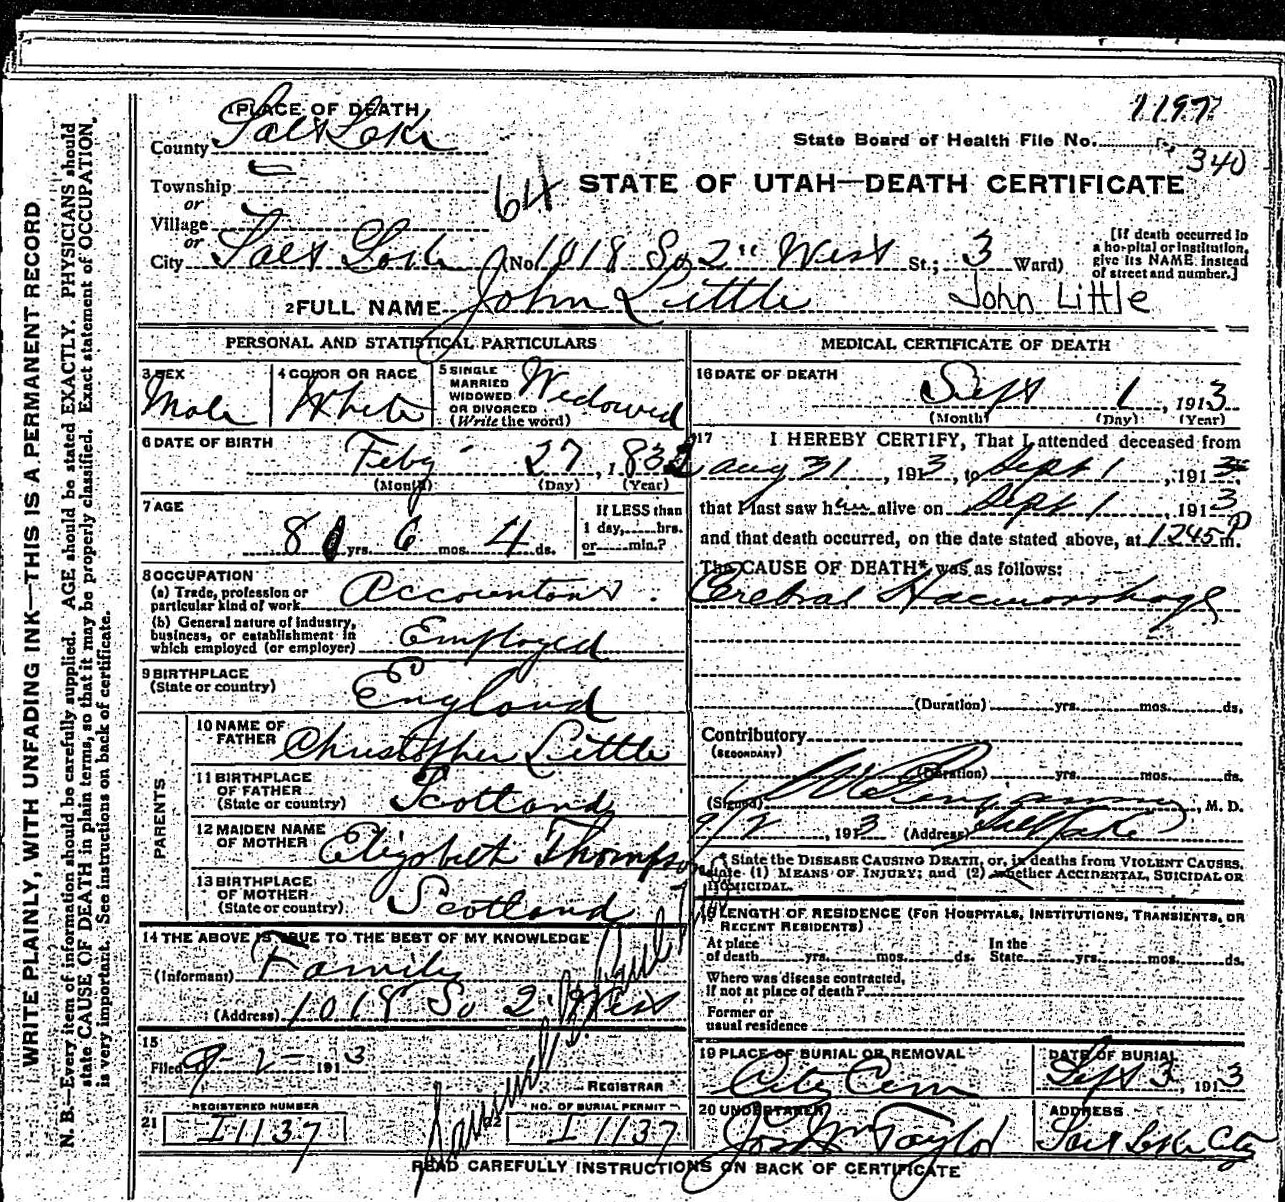 1197
340
1 PLACE OF DEATH
County Salt Lake
State Board of Health File No.
Township
or
64
STATE OF UTAH—DEATH CERTIFICATE
Village
or
City Salt Lake (No. 1018 So 2" West St.; 3 Ward)
[If death occurred in
a hospital or institution,
give its NAME instead
of street and number.]
2 FULL NAME John Little
John Little
PERSONAL AND STATISTICAL PARTICULARS
3 SEX
Male
4 COLOR OR RACE
White
5 SINGLE
MARRIED
WIDOWED
OR DIVORCED
(Write the word)
Widowed
6 DATE OF BIRTH
Feby 27, 1832
(Month) (Day) (Year)
7 AGE
81 yrs. 6 mos. 4 ds.
If LESS than
1 day, hrs.
or min.?
8 OCCUPATION
(a) Trade, profession or
particular kind of work Accountant
(b) General nature of industry,
business, or establishment in
which employed (or employer) Employed
9 BIRTHPLACE
(State or country) England
PARENTS
10 NAME OF
FATHER Christopher Little
11 BIRTHPLACE
OF FATHER
(State or country) Scotland
12 MAIDEN NAME
OF MOTHER Elizabeth Thompson
13 BIRTHPLACE
OF MOTHER
(State or country) Scotland
14 THE ABOVE IS TRUE TO THE BEST OF MY KNOWLEDGE
(Informant) Family
(Address) 1018 So 2" West
15
Filed 9-2-1913
REGISTRAR
Samuel G Paul
REGISTERED NUMBER
21 I 1137
NO. OF BURIAL PERMIT
22 I 1137
MEDICAL CERTIFICATE OF DEATH
16 DATE OF DEATH
Sept 1, 1913
(Month) (Day) (Year)
17 I HEREBY CERTIFY, That I attended deceased from
Aug 31, 1913, to Sept 1, 1913.
that I last saw him alive on Sept 1, 1913
and that death occurred, on the date stated above, at 1245 P m.
The CAUSE OF DEATH* was as follows:
Cerebral Haemorrhage
(Duration) yrs. mos. ds.
Contributory
(SECONDARY)
(Duration) yrs. mos. ds.
(Signed) , M. D.
9/2, 1913 (Address) Salt Lake
* State the DISEASE CAUSING DEATH, or, in deaths from VIOLENT CAUSES,
state (1) MEANS OF INJURY; and (2) whether ACCIDENTAL, SUICIDAL OR
HOMICIDAL.
18 LENGTH OF RESIDENCE (FOR HOSPITALS, INSTITUTIONS, TRANSIENTS, OR
RECENT RESIDENTS)
At place
of death yrs. mos. ds.
In the
State yrs. mos. ds.
Where was disease contracted,
if not at place of death?
Former or
usual residence
19 PLACE OF BURIAL OR REMOVAL
City Cem
DATE OF BURIAL
Sept 3, 1913
20 UNDERTAKER
Jos Wm Taylor
ADDRESS
Salt Lake City
READ CAREFULLY INSTRUCTIONS ON BACK OF CERTIFICATE
WRITE PLAINLY, WITH UNFADING INK—THIS IS A PERMANENT RECORD
N. B.—Every item of information should be carefully supplied. AGE should be stated EXACTLY. PHYSICIANS should
state CAUSE OF DEATH in plain terms, so that it may be properly classified. Exact statement of OCCUPATION
is very important. See instructions on back of certificate.